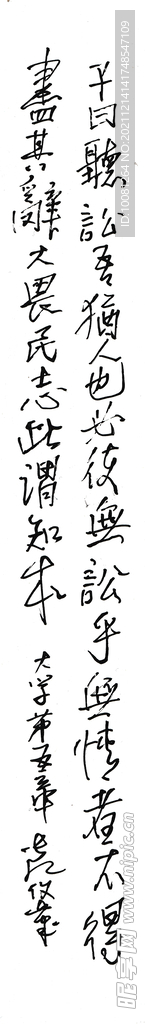 子曰聽訟吾猶人也必使無訟乎無情者不得
盡其辭大畏民志此謂知本
大学第五章
ID:10083264 NO:20211214141748547109
昵图网
www.nipic.com